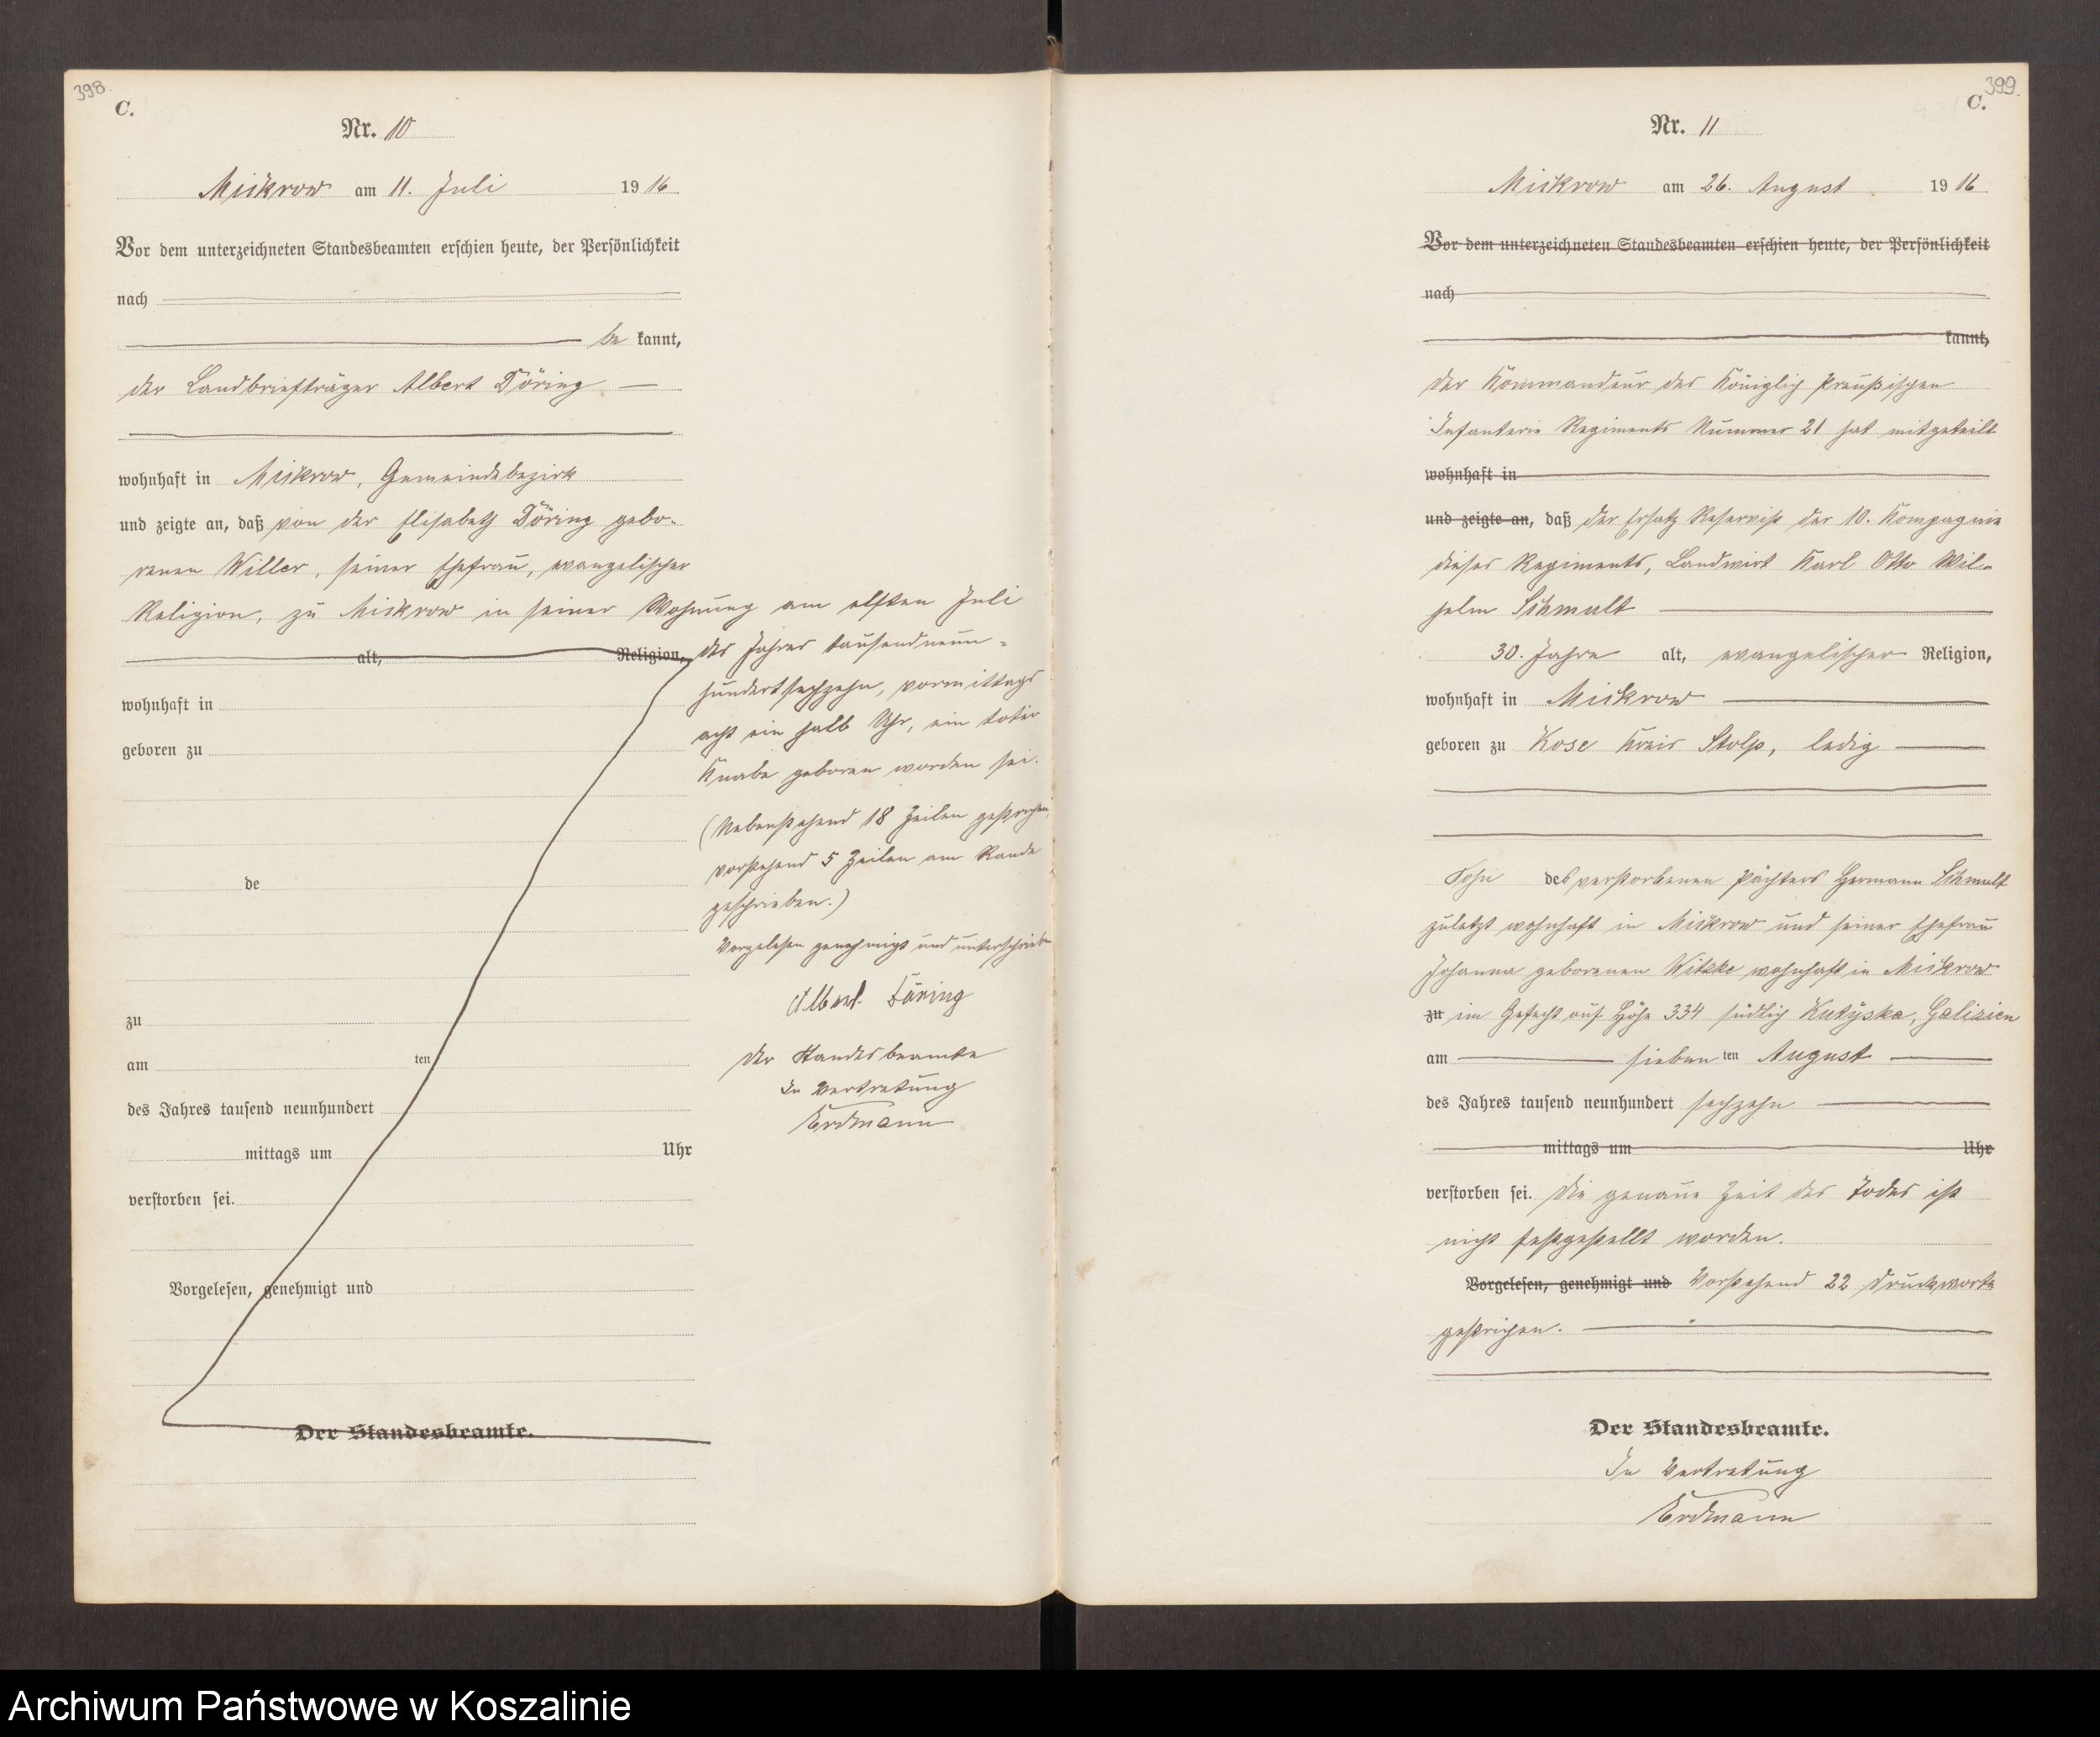 398.
C.
Nr. 10
Mickrow am 11. Juli 1916
Vor dem unterzeichneten Standesbeamten erschien heute, der Persönlichkeit
nach
be kannt,
der Landbriefträger Albert Döring
wohnhaft in Mickrow, Gemeindebezirk
und zeigte an, daß von der Elisabeth Döring gebo-
renen Willer, seiner Ehefrau, evangelischer
Religion, zu Mickrow in seiner Wohnung am elften Juli
alt, Religion, des Jahres tausendneun-
hundertsechzehn, vormittags
wohnhaft in
acht ein halb Uhr, ein toter
geboren zu
Knabe geboren worden sei.
(Nebenstehend 18 Zeilen gestrichen,
vorstehend 5 Zeilen am Rande
de
geschrieben.)
Vorgelesen genehmigt und unterschrieben
Albert Döring
zu
Der Standesbeamte
am ten
In Vertretung
des Jahres tausend neunhundert
Erdmann
mittags um Uhr
verstorben sei.
Vorgelesen, genehmigt und
Der Standesbeamte.
399.
C.
Nr. 11
Mickrow am 26. August 1916
Vor dem unterzeichneten Standesbeamten erschien heute, der Persönlichkeit
nach
kannt,
Der Kommandeur des Königlich Preußischen
Infanterie Regiments Nummer 21 hat mitgeteilt
wohnhaft in
und zeigte an, daß der Ersatz Reservist der 10. Kompagnie
dieses Regiments, Landwirt Karl Otto Wil-
helm Schmalt
30 Jahre alt, evangelischer Religion,
wohnhaft in Mickrow
geboren zu Kose Kreis Stolp, ledig
Sohn des verstorbenen Pächters Hermann Schmalt
zuletzt wohnhaft in Mickrow und seiner Ehefrau
Johanna geborenen Witzke wohnhaft in Mickrow
zu im Gefecht auf Höhe 334 südlich Kutyska, Galizien
am sieben ten August
des Jahres tausend neunhundert sechzehn
mittags um Uhr
verstorben sei. Die genaue Zeit des Todes ist
nicht festgestellt worden.
Vorgelesen, genehmigt und Vorstehend 22 Druckworte
gestrichen.
Der Standesbeamte.
In Vertretung
Erdmann
Archiwum Państwowe w Koszalinie